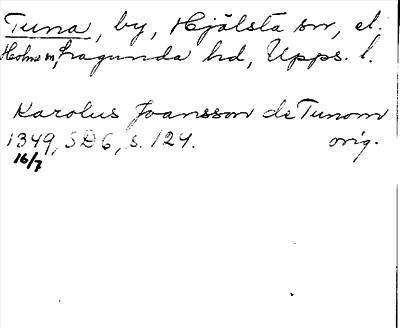 Tuna, by, Hjälsta sn, el.
Holms sn, Lagunda hd, Upps. l.
Karolus Joansson de Tunom
1349, SD 6, s. 124. orig.
16/7